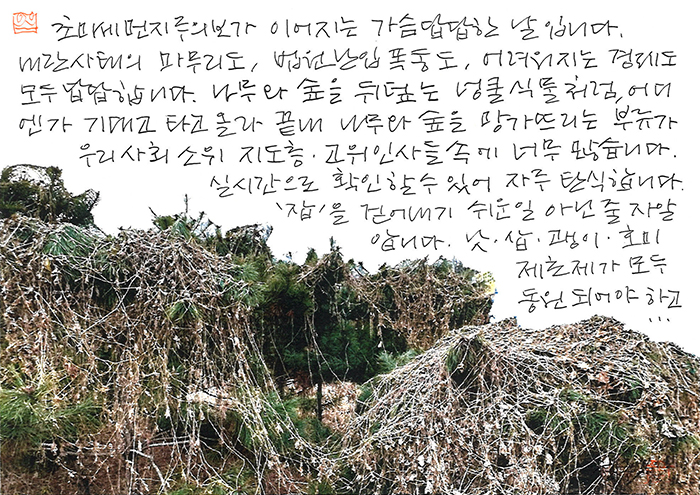 초미세먼지주의보가 이어지는 가슴답답한 날입니다.
내란사태의 마무리도, 법원난입폭동도, 어려워지는 경제도
모두 답답합니다. 나무와 숲을 뒤덮는 넝쿨식물처럼, 어디
엔가 기대고 타고 올라 끝내 나무와 숲을 망가뜨리는 부류가
우리 사회 소위 지도층·고위인사들 속에 너무 많습니다.
실시간으로 확인할 수 있어 자주 탄식합니다.
'잡'을 걷어내기 쉬운일 아닌 줄 자알
압니다. 낫·삽·괭이·호미
제초제가 모두
동원되어야 하고
...